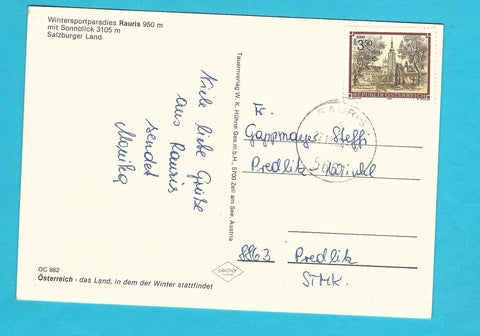 Wintersportparadies Rauris 950 m
mit Sonnblick 3105 m
Salzburger Land
Viele liebe Grüße
aus Rauris
sendet
Monika
Tauernverlag W. K. Hühne Ges.m.b.H., 5700 Zell am See, Austria
3.50
REPUBLIK ÖSTERREICH
RAURIS
Fr.
Gappmayer Steffi
Predlitz
8863 Predlitz
STMK.
OC 982
Österreich - das Land, in dem der Winter stattfindet
pechar